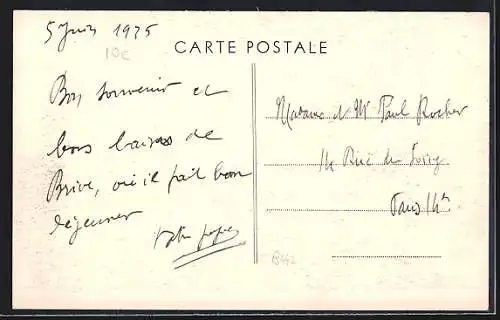 5 Juin 1935
10c
CARTE POSTALE
Bon souvenir et
bons baisers de
Brive, où il fait bon
déjeuner
Madame et Mr Paul Rocher
14 Rue de
Paris